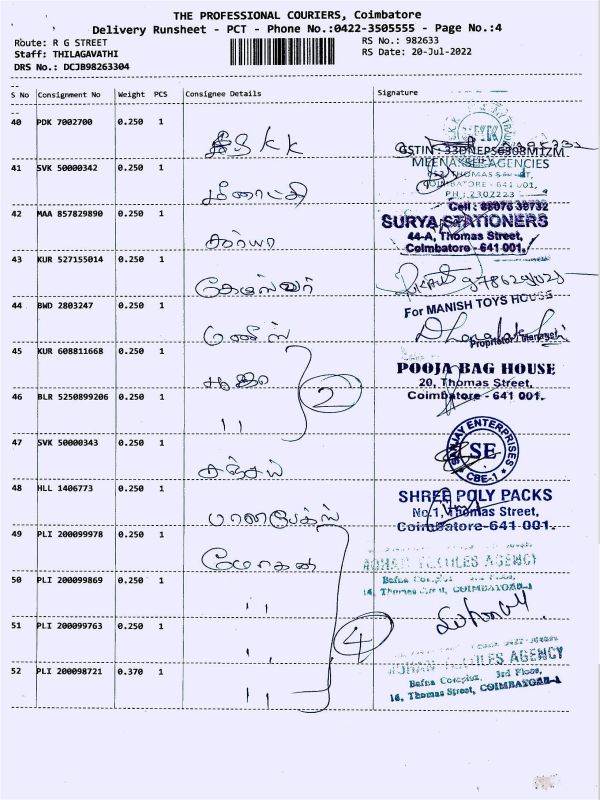 THE PROFESSIONAL COURIERS, Coimbatore
Delivery Runsheet - PCT - Phone No.:0422-3505555 - Page No.:4
Route: R G STREET RS No.: 982633
Staff: THILAGAVATHI RS Date: 20-Jul-2022
DRS No.: DCJB98263304
S No Consignment No Weight PCS Consignee Details Signature
40 PDK 7002700 0.250 1
KK
MEENAKSHI AGENCIES
41 SVK 50000342 0.250 1
மீனாட்சி
42 MAA 857829890 0.250 1
Cell : 88076 39732
SURYA STATIONERS
44-A, Thomas Street,
Coimbatore - 641 001.
சூர்யா
43 KUR 527155014 0.250 1
For MANISH TOYS HOUSE
44 BWD 2803247 0.250 1
மனிஸ்
Proprietor / Manager
45 KUR 608811668 0.250 1
பூஜா
2
POOJA BAG HOUSE
20, Thomas Street,
Coimbatore - 641 001.
46 BLR 5250899206 0.250 1
"
47 SVK 50000343 0.250 1
சஞ்சய்
SANJAY ENTERPRISES
SE
CBE-1
48 HLL 1406773 0.250 1
SHREE POLY PACKS
No.1, Thomas Street,
Coimbatore-641 001.
49 PLI 200099978 0.250 1
மோகன்
TEXTILES AGENCY
Bafna Complex 3rd Floor,
16, Thomas Street, COIMBATORE-1
50 PLI 200099869 0.250 1
"
51 PLI 200099763 0.250 1
"
4
52 PLI 200098721 0.370 1
"
MOHAN TEXTILES AGENCY
Bafna Complex, 3rd Floor,
16, Thomas Street, COIMBATORE-1